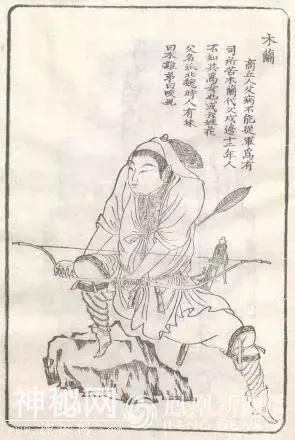 木蘭
商丘人父病不能從軍爲有
司所苦木蘭代父戍邊十二年人
不知其爲女也或云姓花
父名弧北魏時人有妹
曰木難弟曰咬兒
神秘网